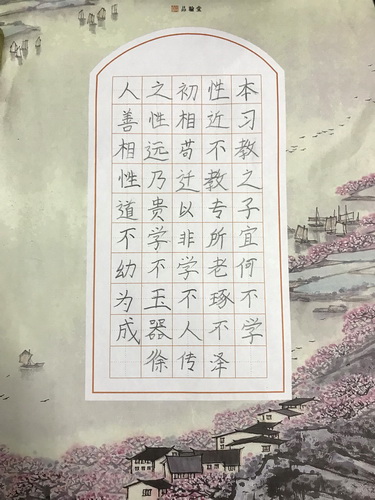 品翰堂
人之初性本
善性相近习
相远苟不教
性乃迁教之
道贵以专子
不学非所宜
幼不学老何
为玉不琢不
成器人不学
徐传泽